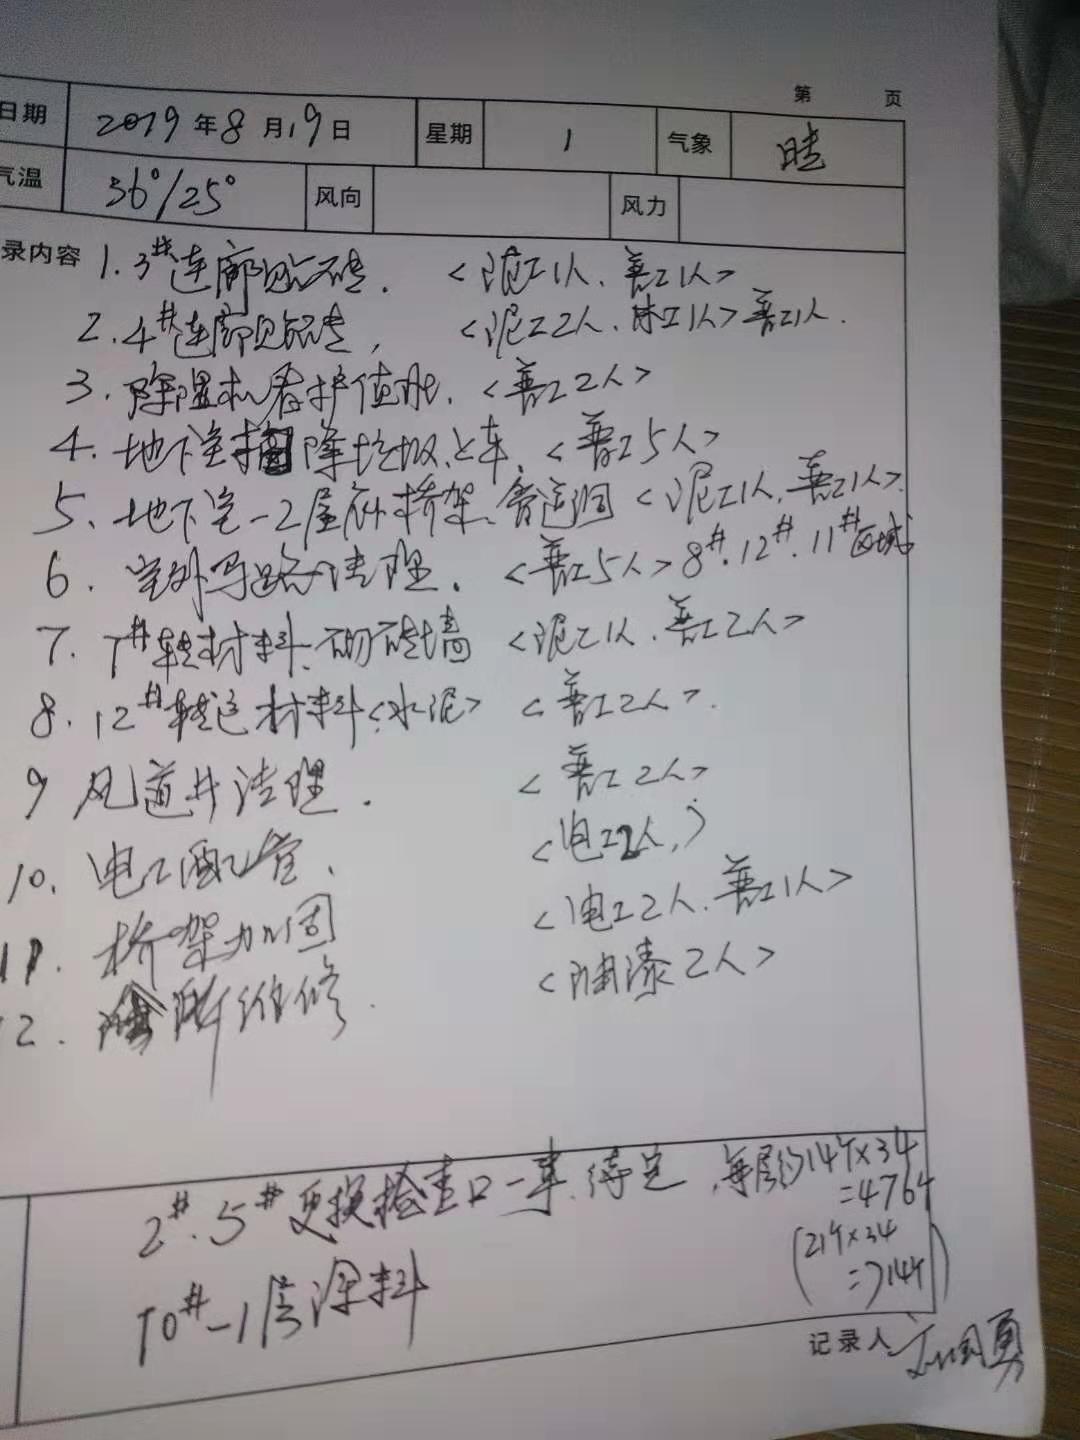 第 页
日期 2019年8月19日 星期 1 气象 晴
气温 36°/25° 风向 风力
录内容 1.3#连廊贴砖. <泥工1人、普工1人>
2.4#连廊贴砖, <泥工2人、木工1人>普工1人.
3.除湿机看护值班.<普工2人>
4.地下室 垃圾上车.<普工5人>
5、地下室-2层 桥架、 洞<泥工1人、普工1人>.
6.室外马路清理.<普工5人>8#.12#.11#区域
7.7#转材料、砌砖墙<泥工1人、普工2人>
8.12#转运材料<水泥> <普工2人>.
9 风道井清理. <普工2人>
10.电工配管. <电工2人,>
11.桥架加固 <电工2人.普工1人>
12. 维修. <油漆2人>
2#.5#更换检查口一事、待定,每层约14个×34
=476个
(21个×34
=714个)
10#-1层涂料
记录人